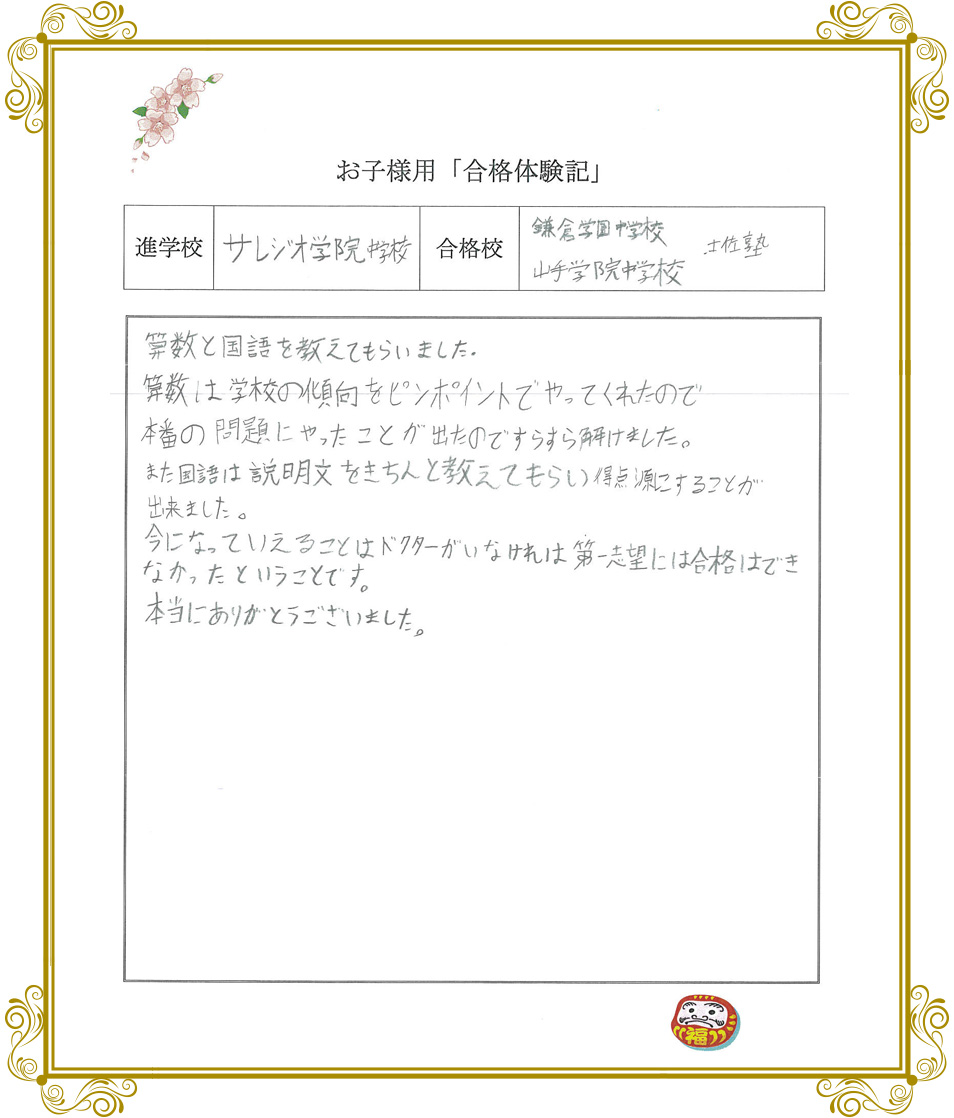 お子様用「合格体験記」
進学校 サレジオ学院中学校 合格校 鎌倉学園中学校 土佐塾
山手学院中学校
算数と国語を教えてもらいました.
算数は学校の傾向をピンポイントでやってくれたので
本番の問題にやったことが出たのですらすら解けました。
また国語は説明文をきちんと教えてもらい得点源にすることが
出来ました。
今になっていえることはドクターがいなければ第一志望には合格はでき
なかったということです。
本当にありがとうございました。
福